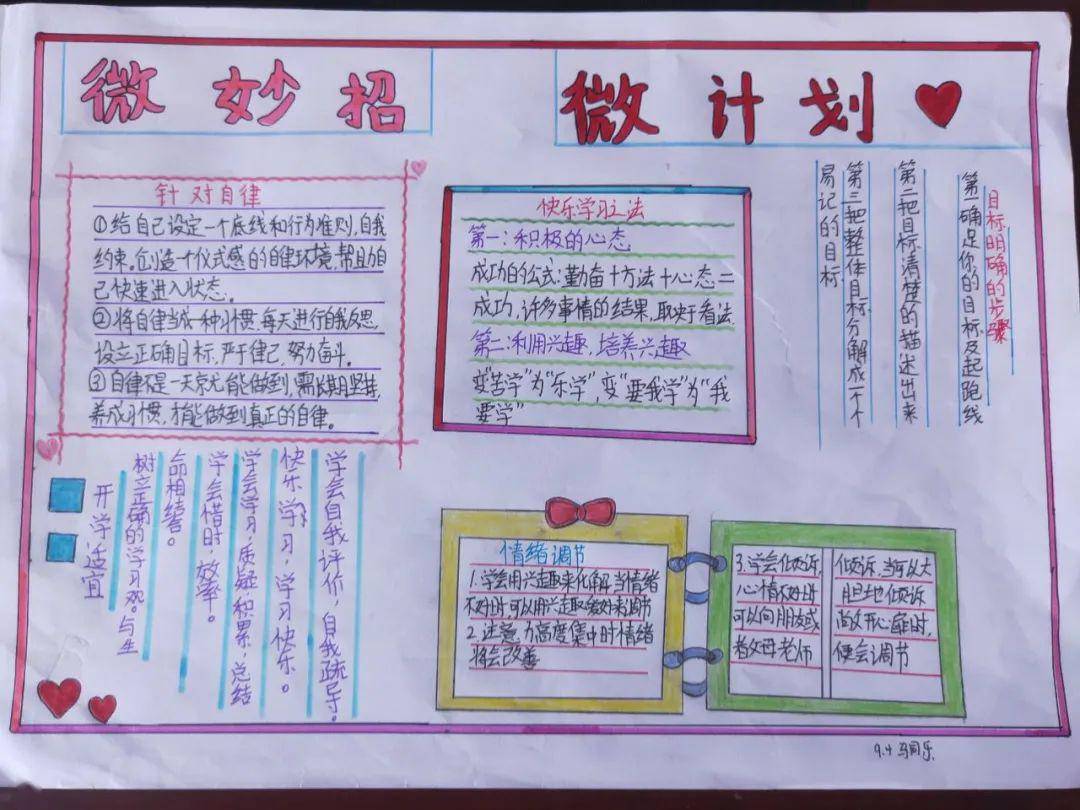 微妙招
微计划
针对自律
①给自己设定一个底线和行为准则,自我
约束。创造一个仪式感的自律环境,帮助自
己快速进入状态。
②将自律当成一种习惯,每天进行自我反思,
设立正确目标,严于律己,努力奋斗。
③自律不是一天就能做到,需长期坚持,
养成习惯,才能做到真正的自律。
快乐学习之法
第一:积极的心态
成功的公式:勤奋+方法+心态=
成功,许多事情的结果,取决于看法.
第二:利用兴趣,培养兴趣
变“苦学”为“乐学”,变“要我学”为“我
要学”
目标明确的步骤
第一确定你的目标及起跑线
第二把目标清楚的描述出来
第三把整体目标分解成一个个
易记的目标
开学适宜
树立正确的学习观。与生
命相结合。
学会惜时,效率。
学会学习,质疑,积累,总结
快乐学习,学习快乐。
学会自我评价,自我疏导。
情绪调节
1.学会用兴趣来化解,当情绪
不好时可以用兴趣爱好来调节
2.注意力高度集中时情绪
将会改善
3.学会倾诉,
心情不好时
可以向朋友或
者父母老师
倾诉,当可以大
胆地倾诉
敞开心扉时,
便会调节
9.4 马同乐